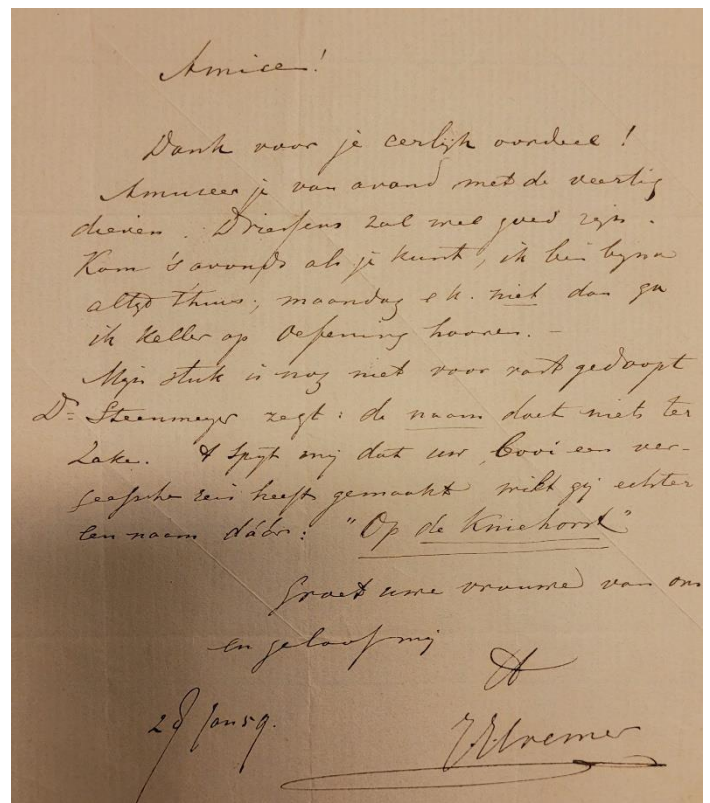 Amice!
Dank voor je eerlijk oordeel!
Amuseer je van avond met de veertig
dieven. Driessens zal wel goed zijn.
Kom 's avonds als je kunt, ik ben byna
altyd thuis; maandag e k. niet dan ga
ik Keller op Oefening hooren. —
Mijn stuk is nog niet voor vast gedoopt
Dr Steenmeyer zegt: de naam doet niets ter
Zake. 't Spijt mij dat uw Cooi een ver-
geefsche reis heeft gemaakt wilt gij echter
een naam dáár: "Op de Kniehorst"
Groet uwe vrouwe van ons
en geloof mij
tt
28 Jan 59.
JJCremer